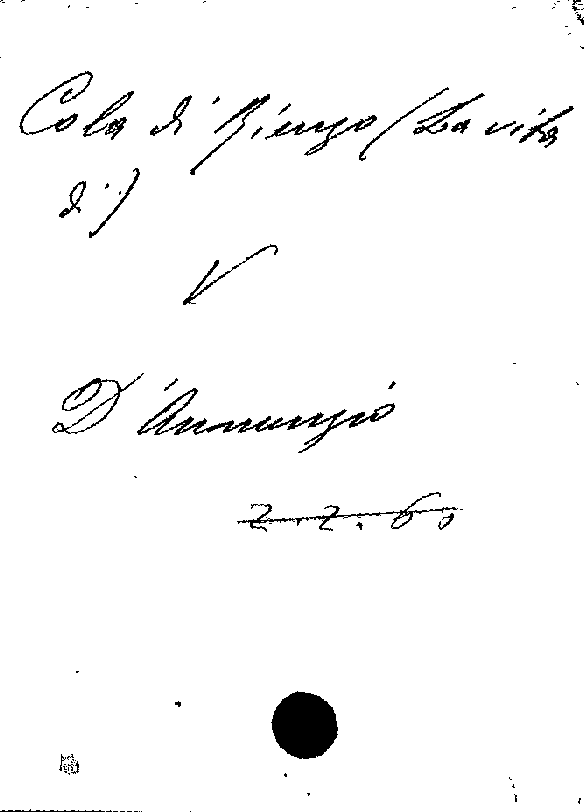 Cola di Rienzo (La vita
di)
V
D'Annunzio
2.2.60